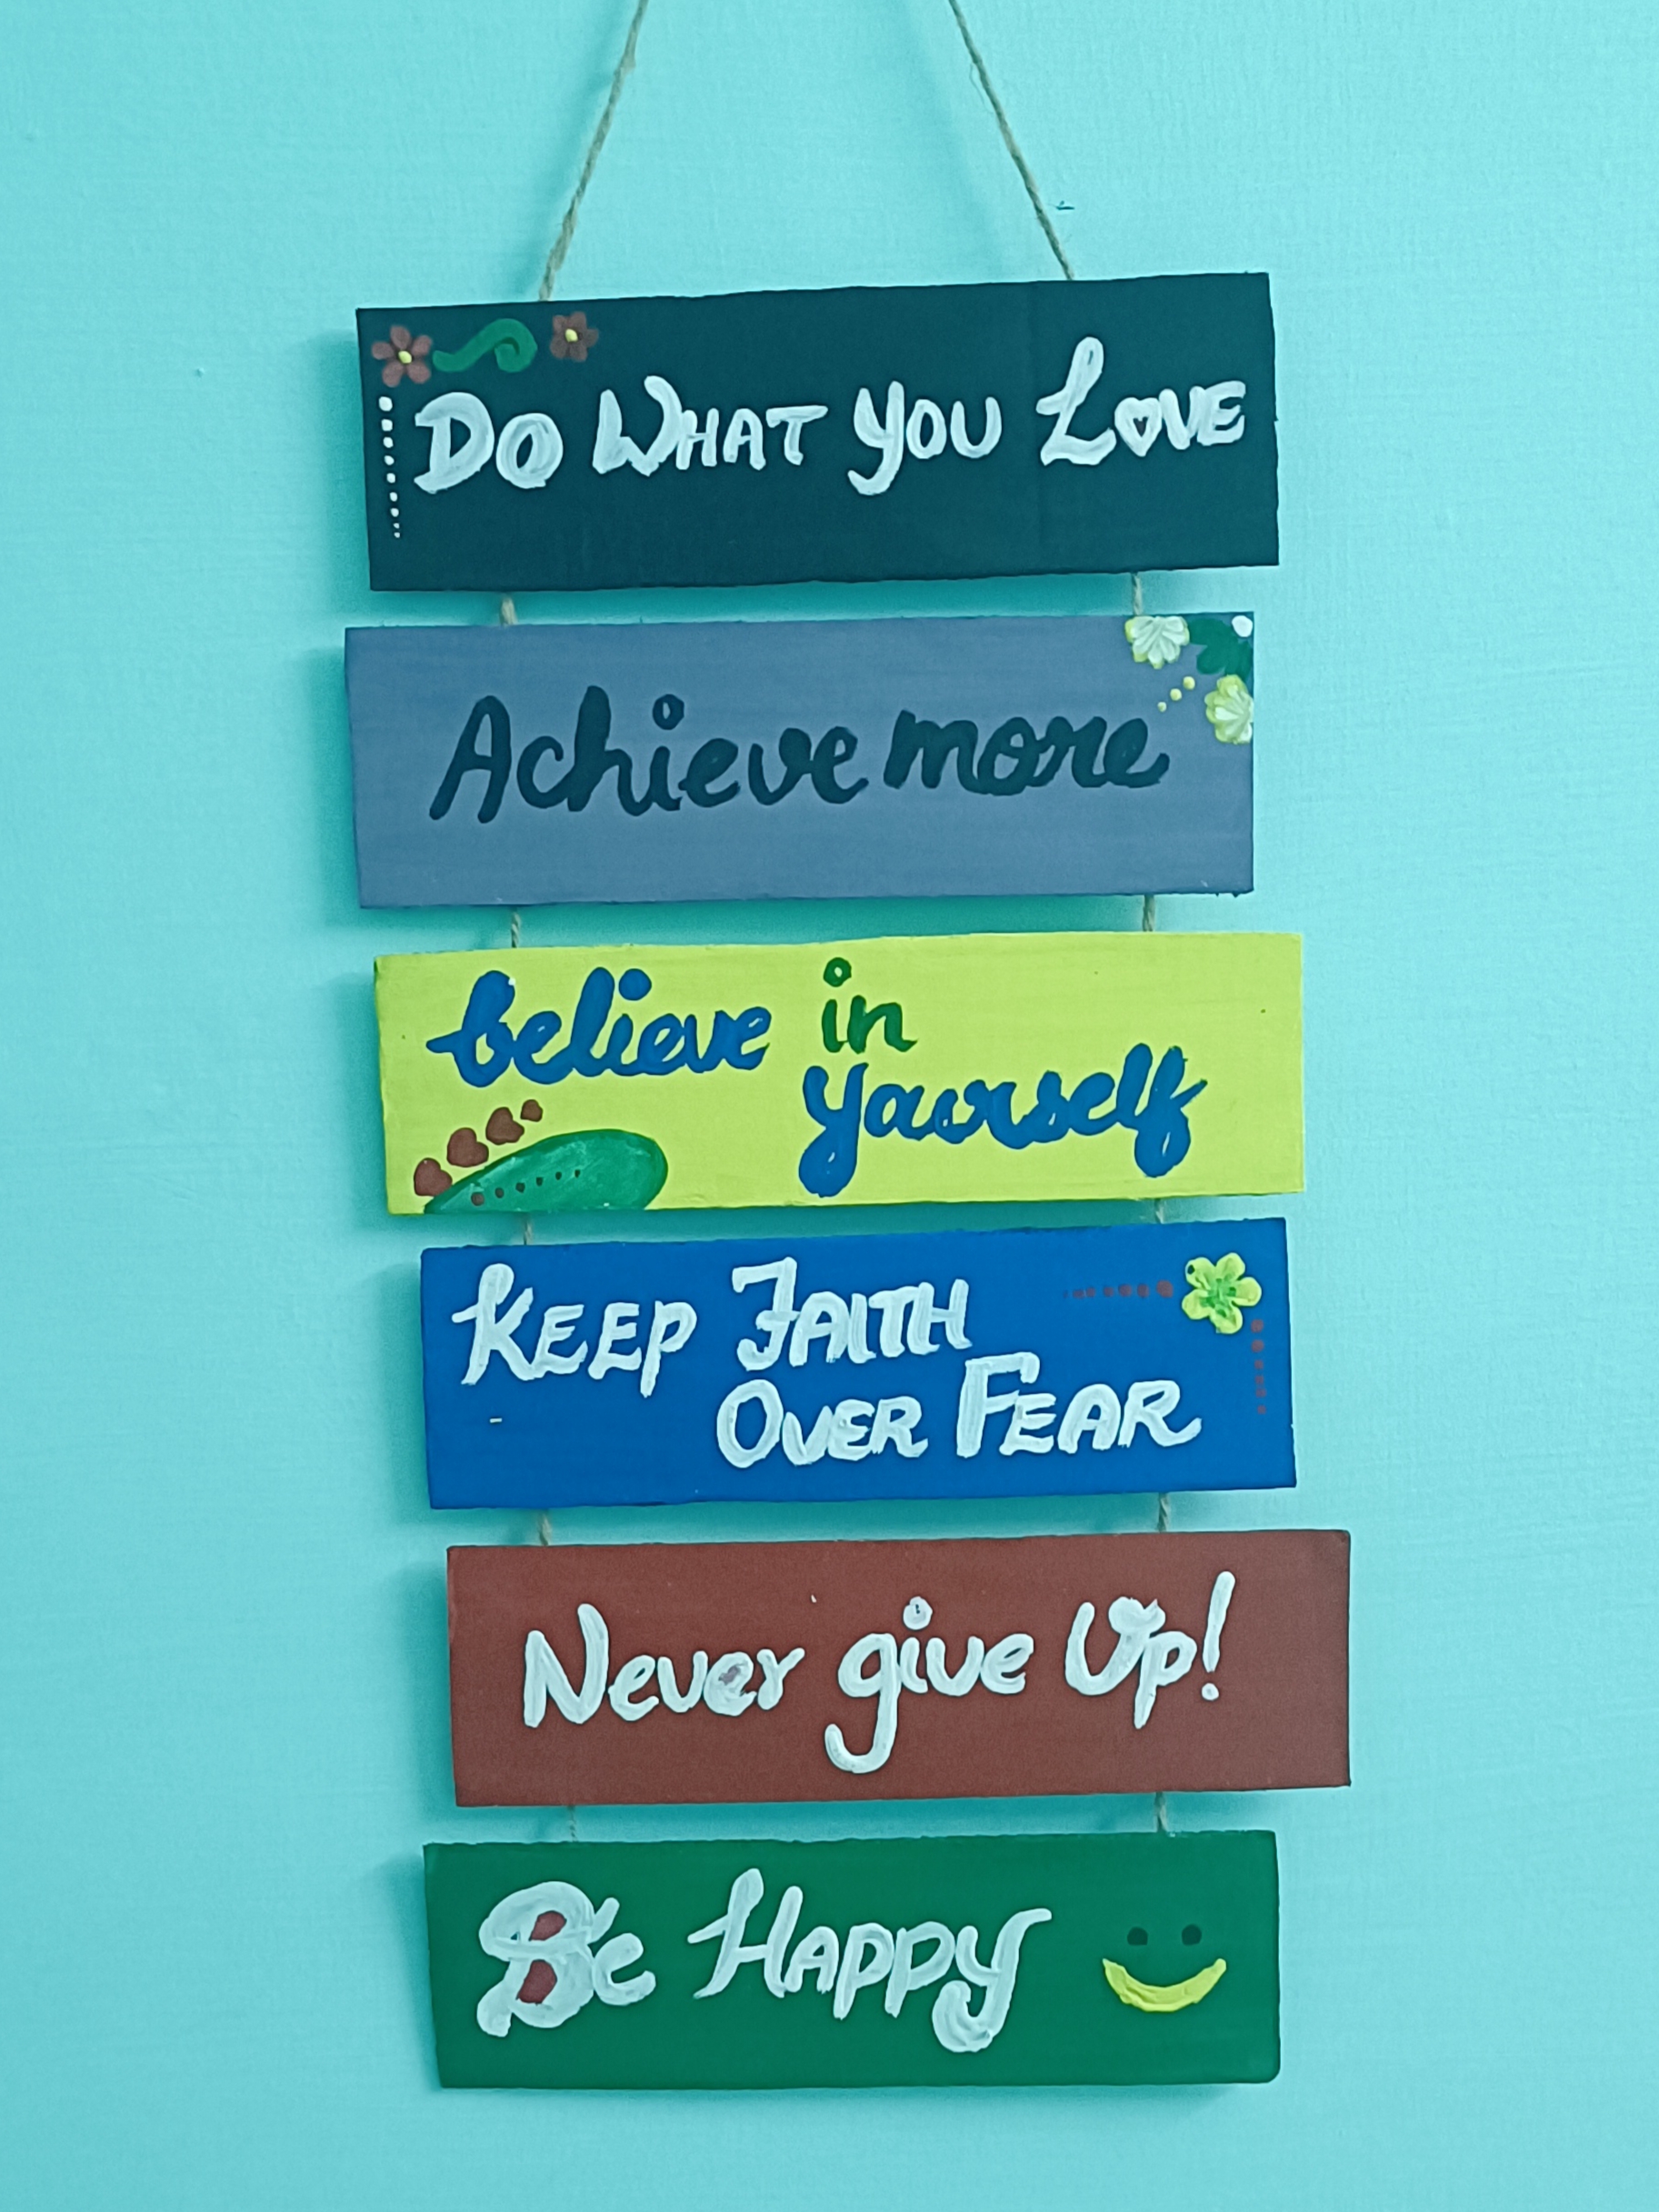 Do What you Love
Achieve more
believe in
yourself
KEEP FAITH
OVER FEAR
Never give Up!
Be Happy